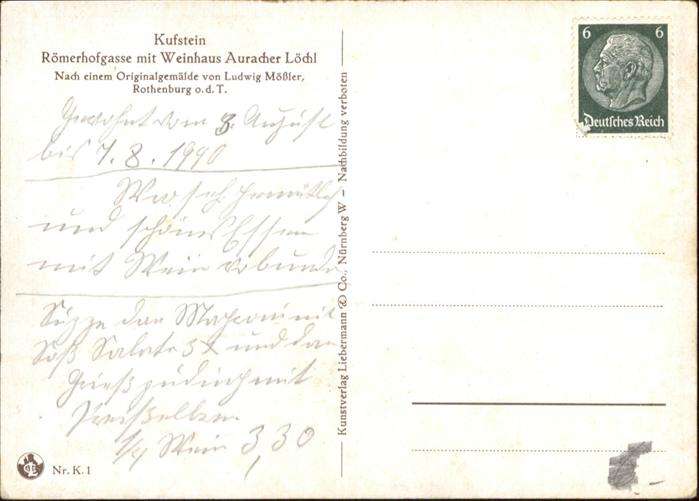 Kufstein
Römerhofgasse mit Weinhaus Auracher Löchl
Nach einem Originalgemälde von Ludwig Mößler,
Rothenburg o.d.T.
Gewohnt vom 3. August
bis 7.8.1940
War sehr gemütlich
und schönes Essen
mit Wein
Suppe dan mit
Soß Salate und dan
Grieß pudding mit
Preiselbeer
1/4 Wein 3,30
Nr. K. 1
Kunstverlag Liebermann & Co., Nürnberg W – Nachbildung verboten
6 6
Deutsches Reich